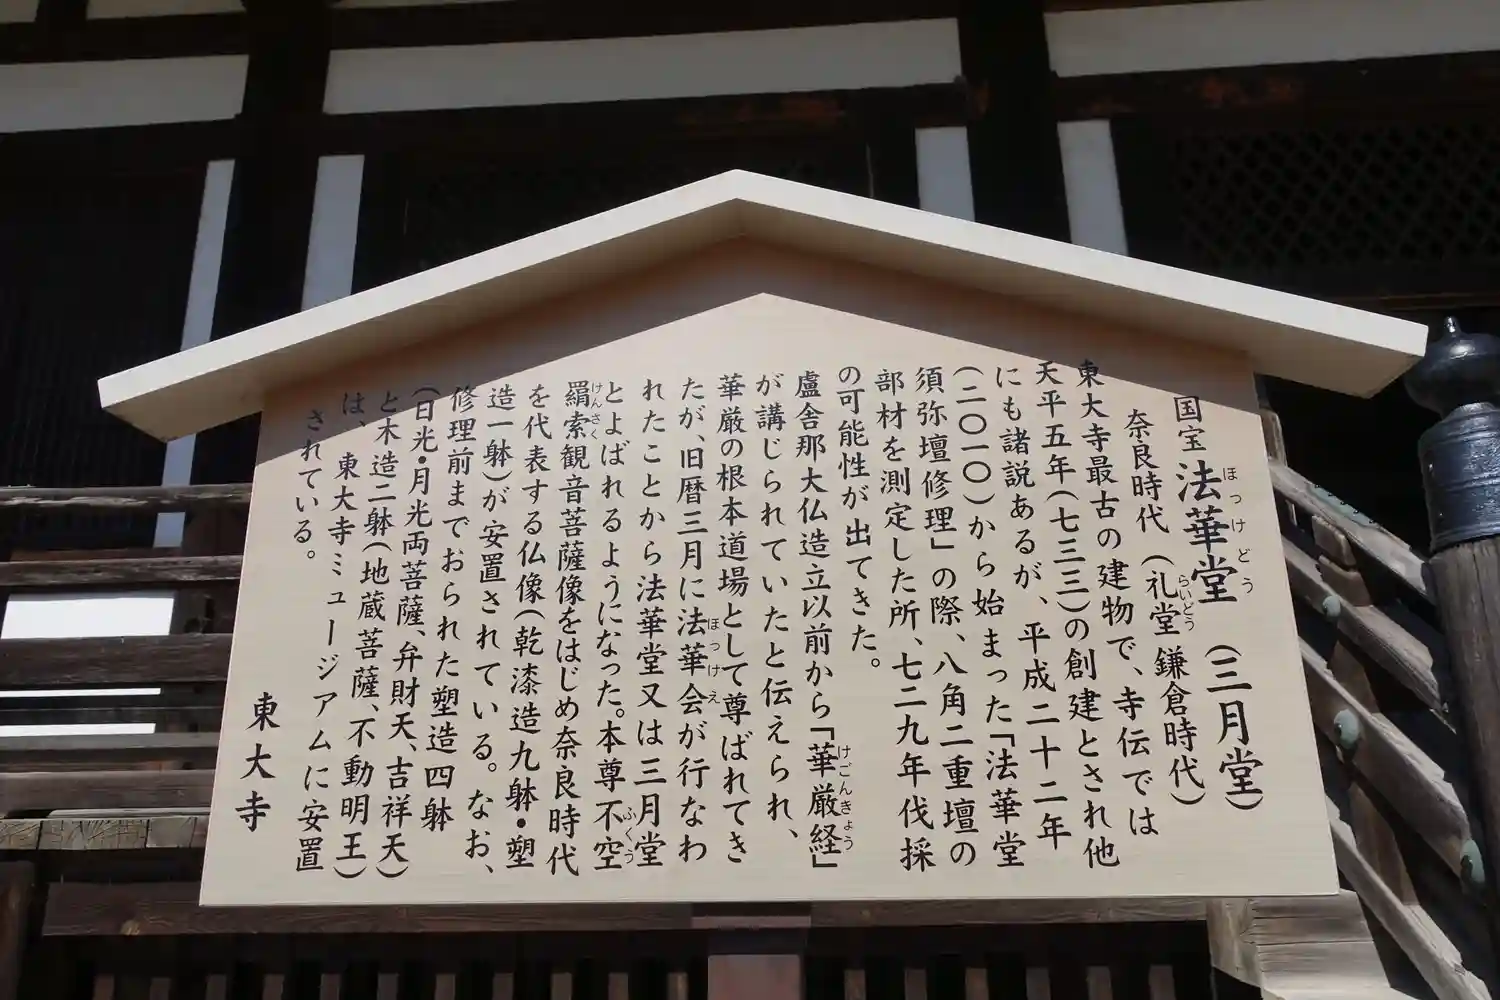 国宝 法華堂（三月堂）
ほっけどう
奈良時代（礼堂鎌倉時代）
らいどう
東大寺最古の建物で、寺伝では
天平五年（七三三）の創建とされ他
にも諸説あるが、平成二十二年
（二〇一〇）から始まった「法華堂
須弥壇修理」の際、八角二重壇の
部材を測定した所、七二九年伐採
の可能性が出てきた。
盧舎那大仏造立以前から「華厳経」
けごんきょう
が講じられていたと伝えられ、
華厳の根本道場として尊ばれてき
たが、旧暦三月に法華会が行なわ
ほっけえ
れたことから法華堂又は三月堂
とよばれるようになった。本尊不空
ふくう
羂索観音菩薩像をはじめ奈良時代
けんさく
を代表する仏像（乾漆造九躰・塑
造一躰）が安置されている。なお、
修理前までおられた塑造四躰
（日光・月光両菩薩、弁財天、吉祥天）
と木造二躰（地蔵菩薩、不動明王）
は、東大寺ミュージアムに安置
されている。
東大寺